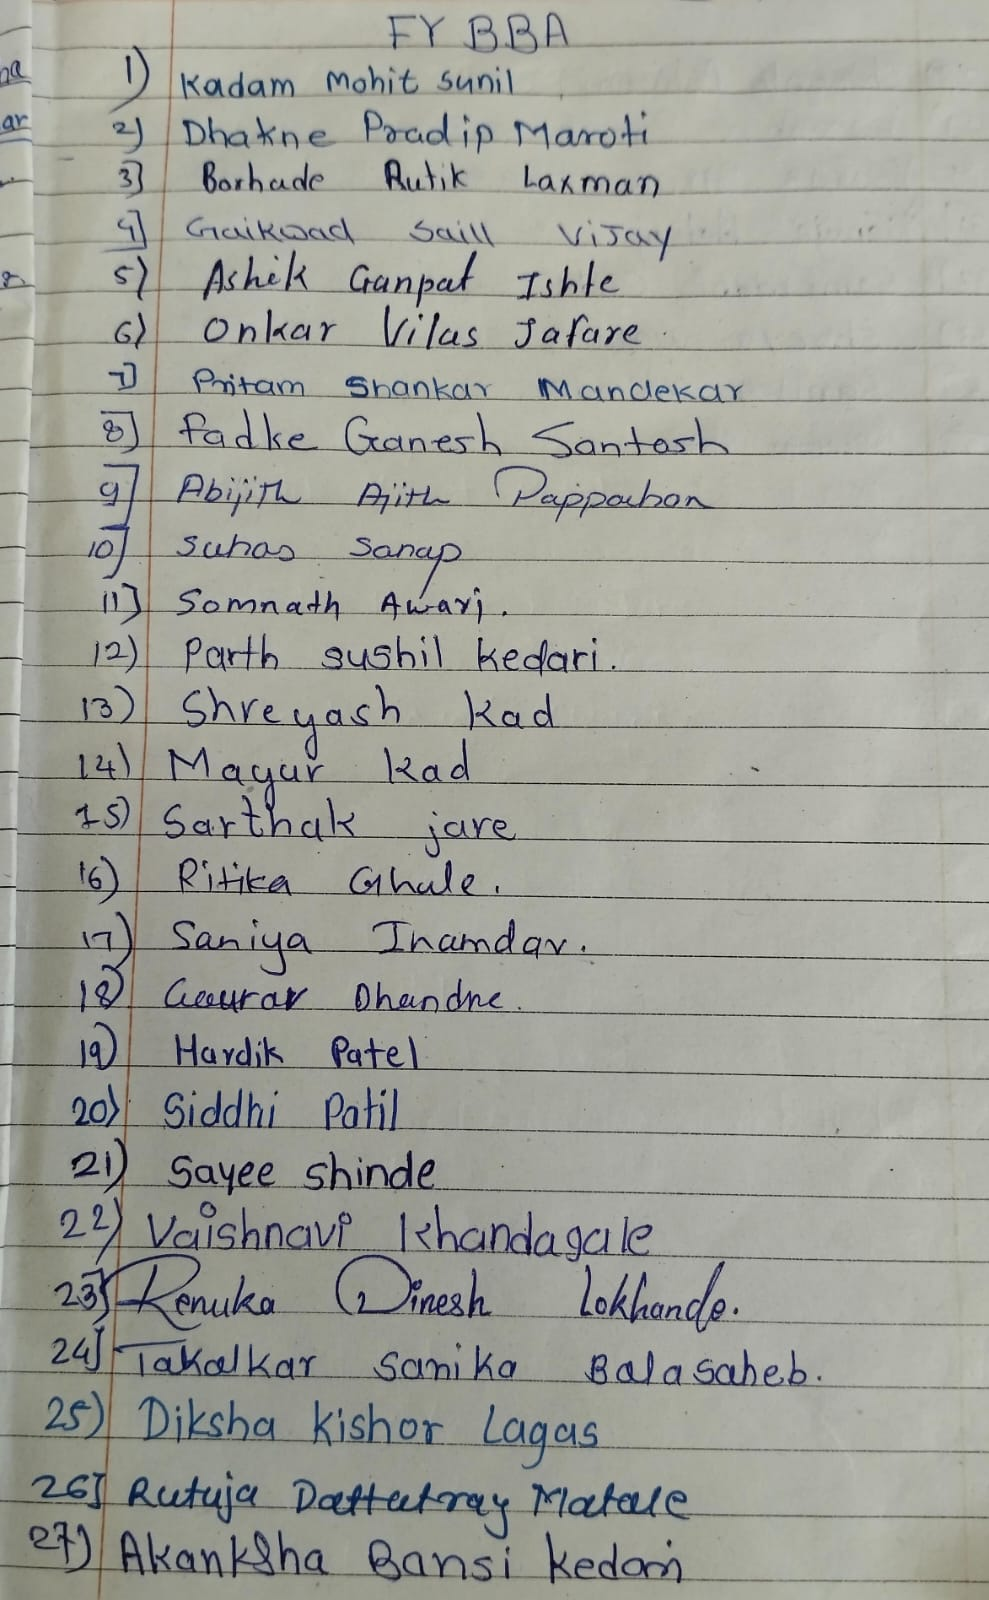 FY BBA
1) Kadam Mohit Sunil
2) Dhakne Pradip Maroti
3] Borhade Rutik Laxman
4] Gaikwad Saill Vijay
5) Ashik Ganpat Ishte
6) Onkar Vilas Jafare.
7] Pritam Shankar Mandekar
8] Fadke Ganesh Santosh
9] Abijith Ajith Pappachan
10] Suhas Sanap
11] Somnath Awari.
12) Parth sushil kedari.
13) Shreyash Kad
14) Mayur Kad
15) Sarthak jare
16) Ritika Ghule.
17) Saniya Inamdar.
18) Gaurav Dhandne.
19) Hardik Patel
20) Siddhi Patil
21) Sayee Shinde
22) Vaishnavi Khandagale
23] Renuka Dinesh Lokhande.
24] Takalkar Sanika Balasaheb.
25) Diksha Kishor Lagas
26] Rutuja Dattatray Matale
27) Akanksha Bansi Kedari